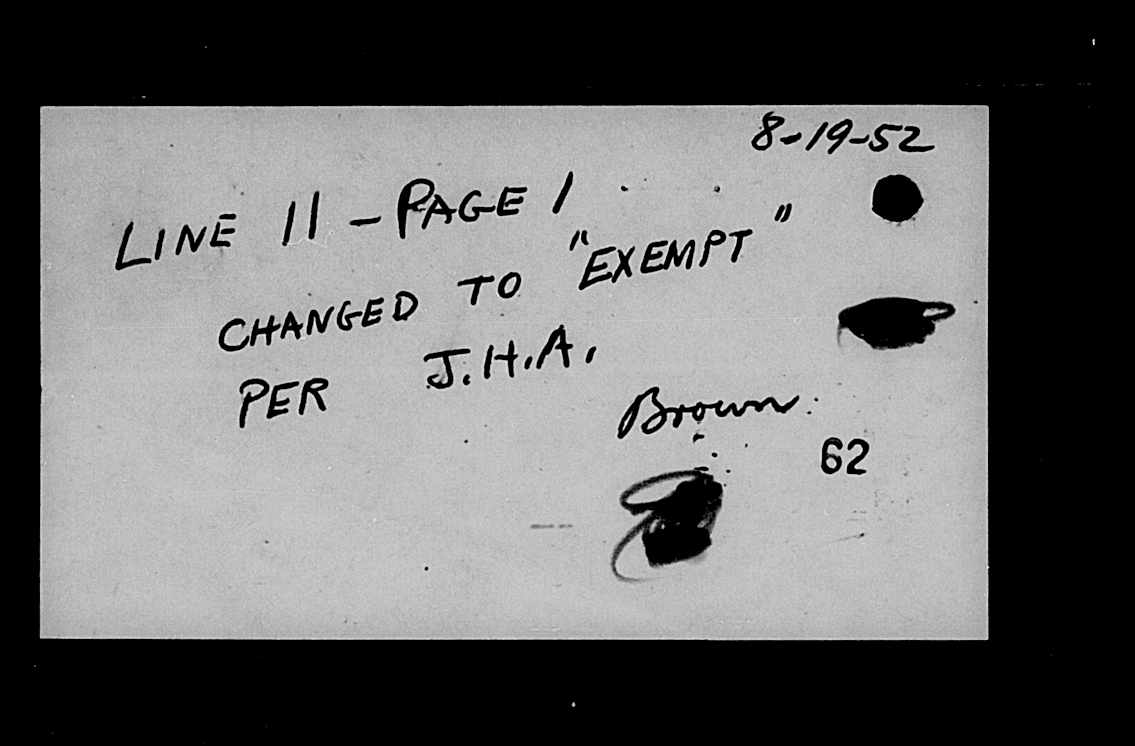 8-19-52
LINE 11 - PAGE 1
CHANGED TO "EXEMPT"
PER J.H.A.
Brown
62